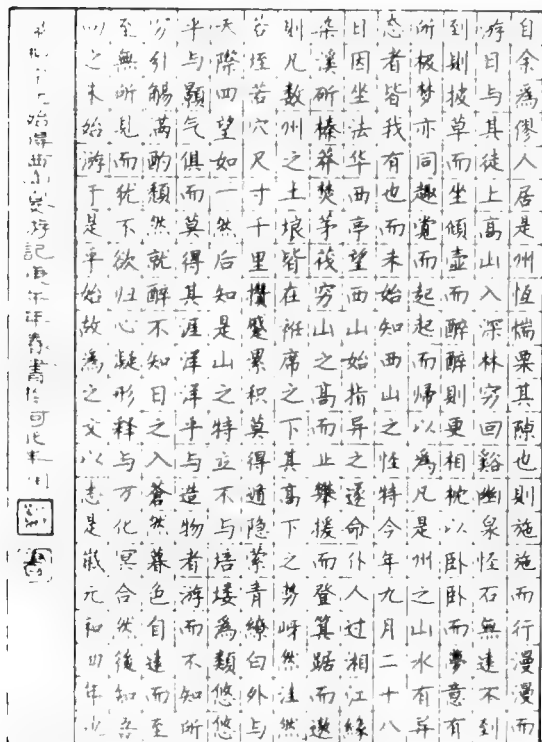 自余為僇人居是州恆惴栗其隙也則施施而行漫漫而
游日与其徒上高山入深林穷回谿幽泉怪石無遠不到
到則披草而坐傾壺而醉醉則更相枕以卧卧而夢意有
所极梦亦同趣覚而起起而帰以為凡是州之山水有异
态者皆我有也而未始知西山之怪特今年九月二十八
日因坐法华西亭望西山始指异之遂命仆人过湘江緣
染溪斫榛莽焚茅筏穷山之高而止攀援而登箕踞而遨
則凡数州之土壤皆在衽席之下其高下之势岈然洼然
若垤若穴尺寸千里攢蹙累积莫得遁隐萦青繚白外与
天際四望如一然后知是山之特立不与培塿為類悠悠
乎与顥气俱而莫得其涯洋洋乎与造物者游而不知所
穷引觴满酌頹然就醉不知日之入蒼然暮色自遠而至
至無所見而犹不欲归心凝形释与万化冥合然後知吾
向之未始游于是乎始故為之文以志是歲元和四年也
始得西山宴游記庚午年春書於可